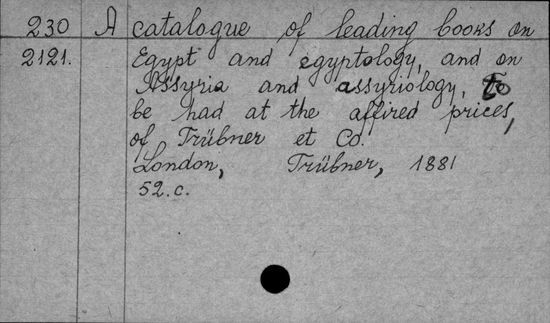 230 A catalogue of leading books on
2121. Egypt and egyptology, and on
Assyria and assyriology, to
be had at the affired prices,
of Trübner et Co.
London, Trübner, 1881
52.c.